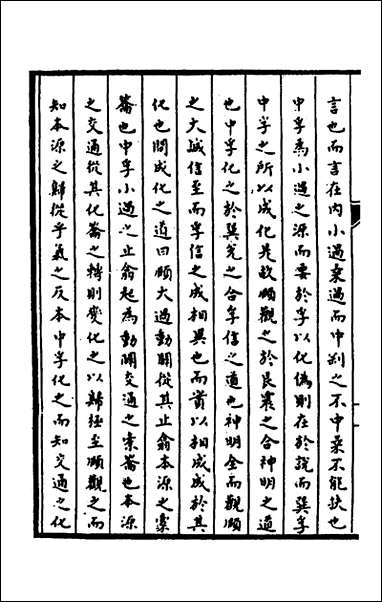 言也而言在内小過棄過而中剝之不中桑不能扶也
中孚爲小過之源而要於孚以化僞則在於說而巽孚
中孚之所以成化是故頤觀之於艮震之合神明之道
也中孚化之於巽兌之合孚信之道也神明全而觀頤
之大誠信至而孚信之成相異也而實以相成成於其
化也閱成化之道曰頤大過動闢從其止翕本源之橐
籥也中孚小過之止翕起爲動闢交通之橐籥也本源
之交通從其化籥之轉則變化之以歸經至頤觀之而
知本源之歸從乎氣之反本中孚化之而知交通之化